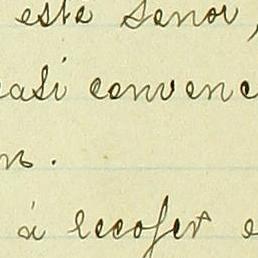 este Senor,
casi convenc
n.
á recoger e